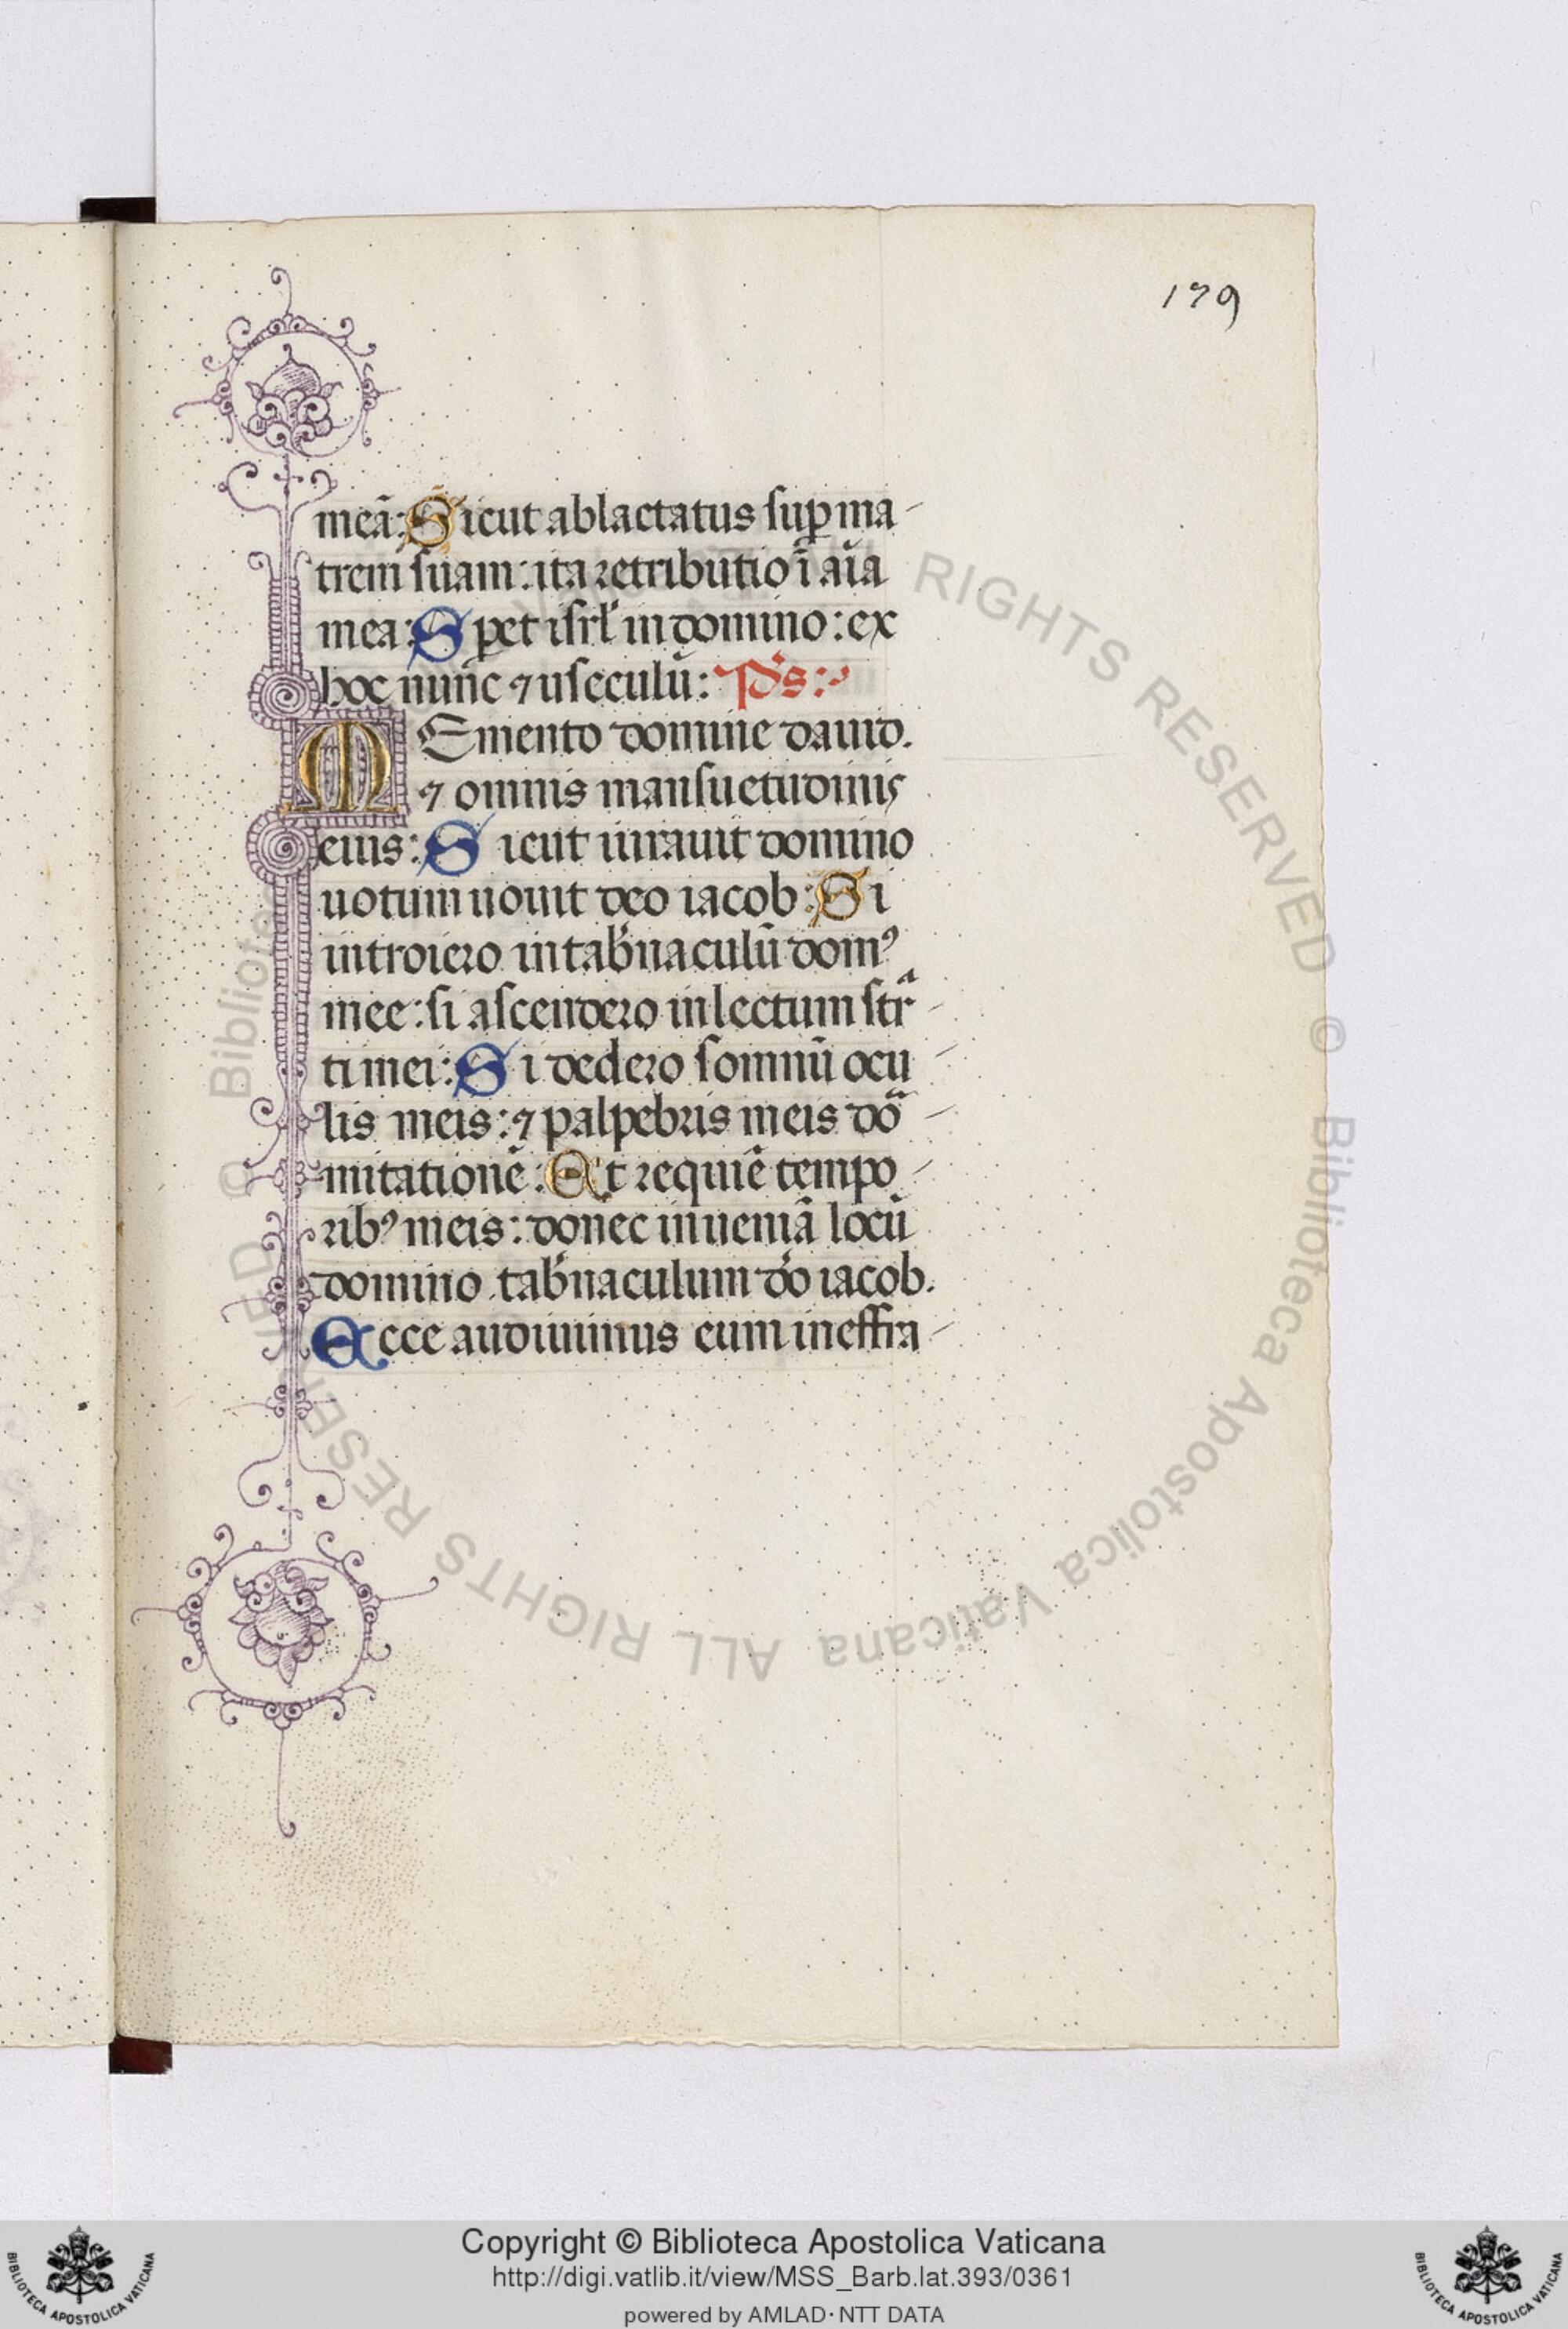 179
meā: Sicut ablactatus sup̱ ma-
trem suam: ita retributio ī aīa
mea: Sp̱et isrl' in domino: ex
hoc nunc ⁊ usq̱ in seculū: Ps:
MEmento domine dauid.
⁊ omnis mansuetudinis
eius: Sicut iurauit domino
uotum uouit deo iacob: Si
introiero in tab'naculū domꝰ
mee: si ascendero in lectum strᵃ-
ti mei: Si dedero somnū ocu-
lis meis: ⁊ palpebris meis do̅-
mitationē: Et requiē tempo-
ribꝰ meis: donec inueniā locū
domino tab'naculum do iacob.
Ecce audiuimus eum in effra-
© Biblioteca Apostolica Vaticana ALL RIGHTS RESERVED
Copyright © Biblioteca Apostolica Vaticana
http://digi.vatlib.it/view/MSS_Barb.lat.393/0361
powered by AMLAD·NTT DATA
BIBLIOTECA APOSTOLICA VATICANA
BIBLIOTECA APOSTOLICA VATICANA